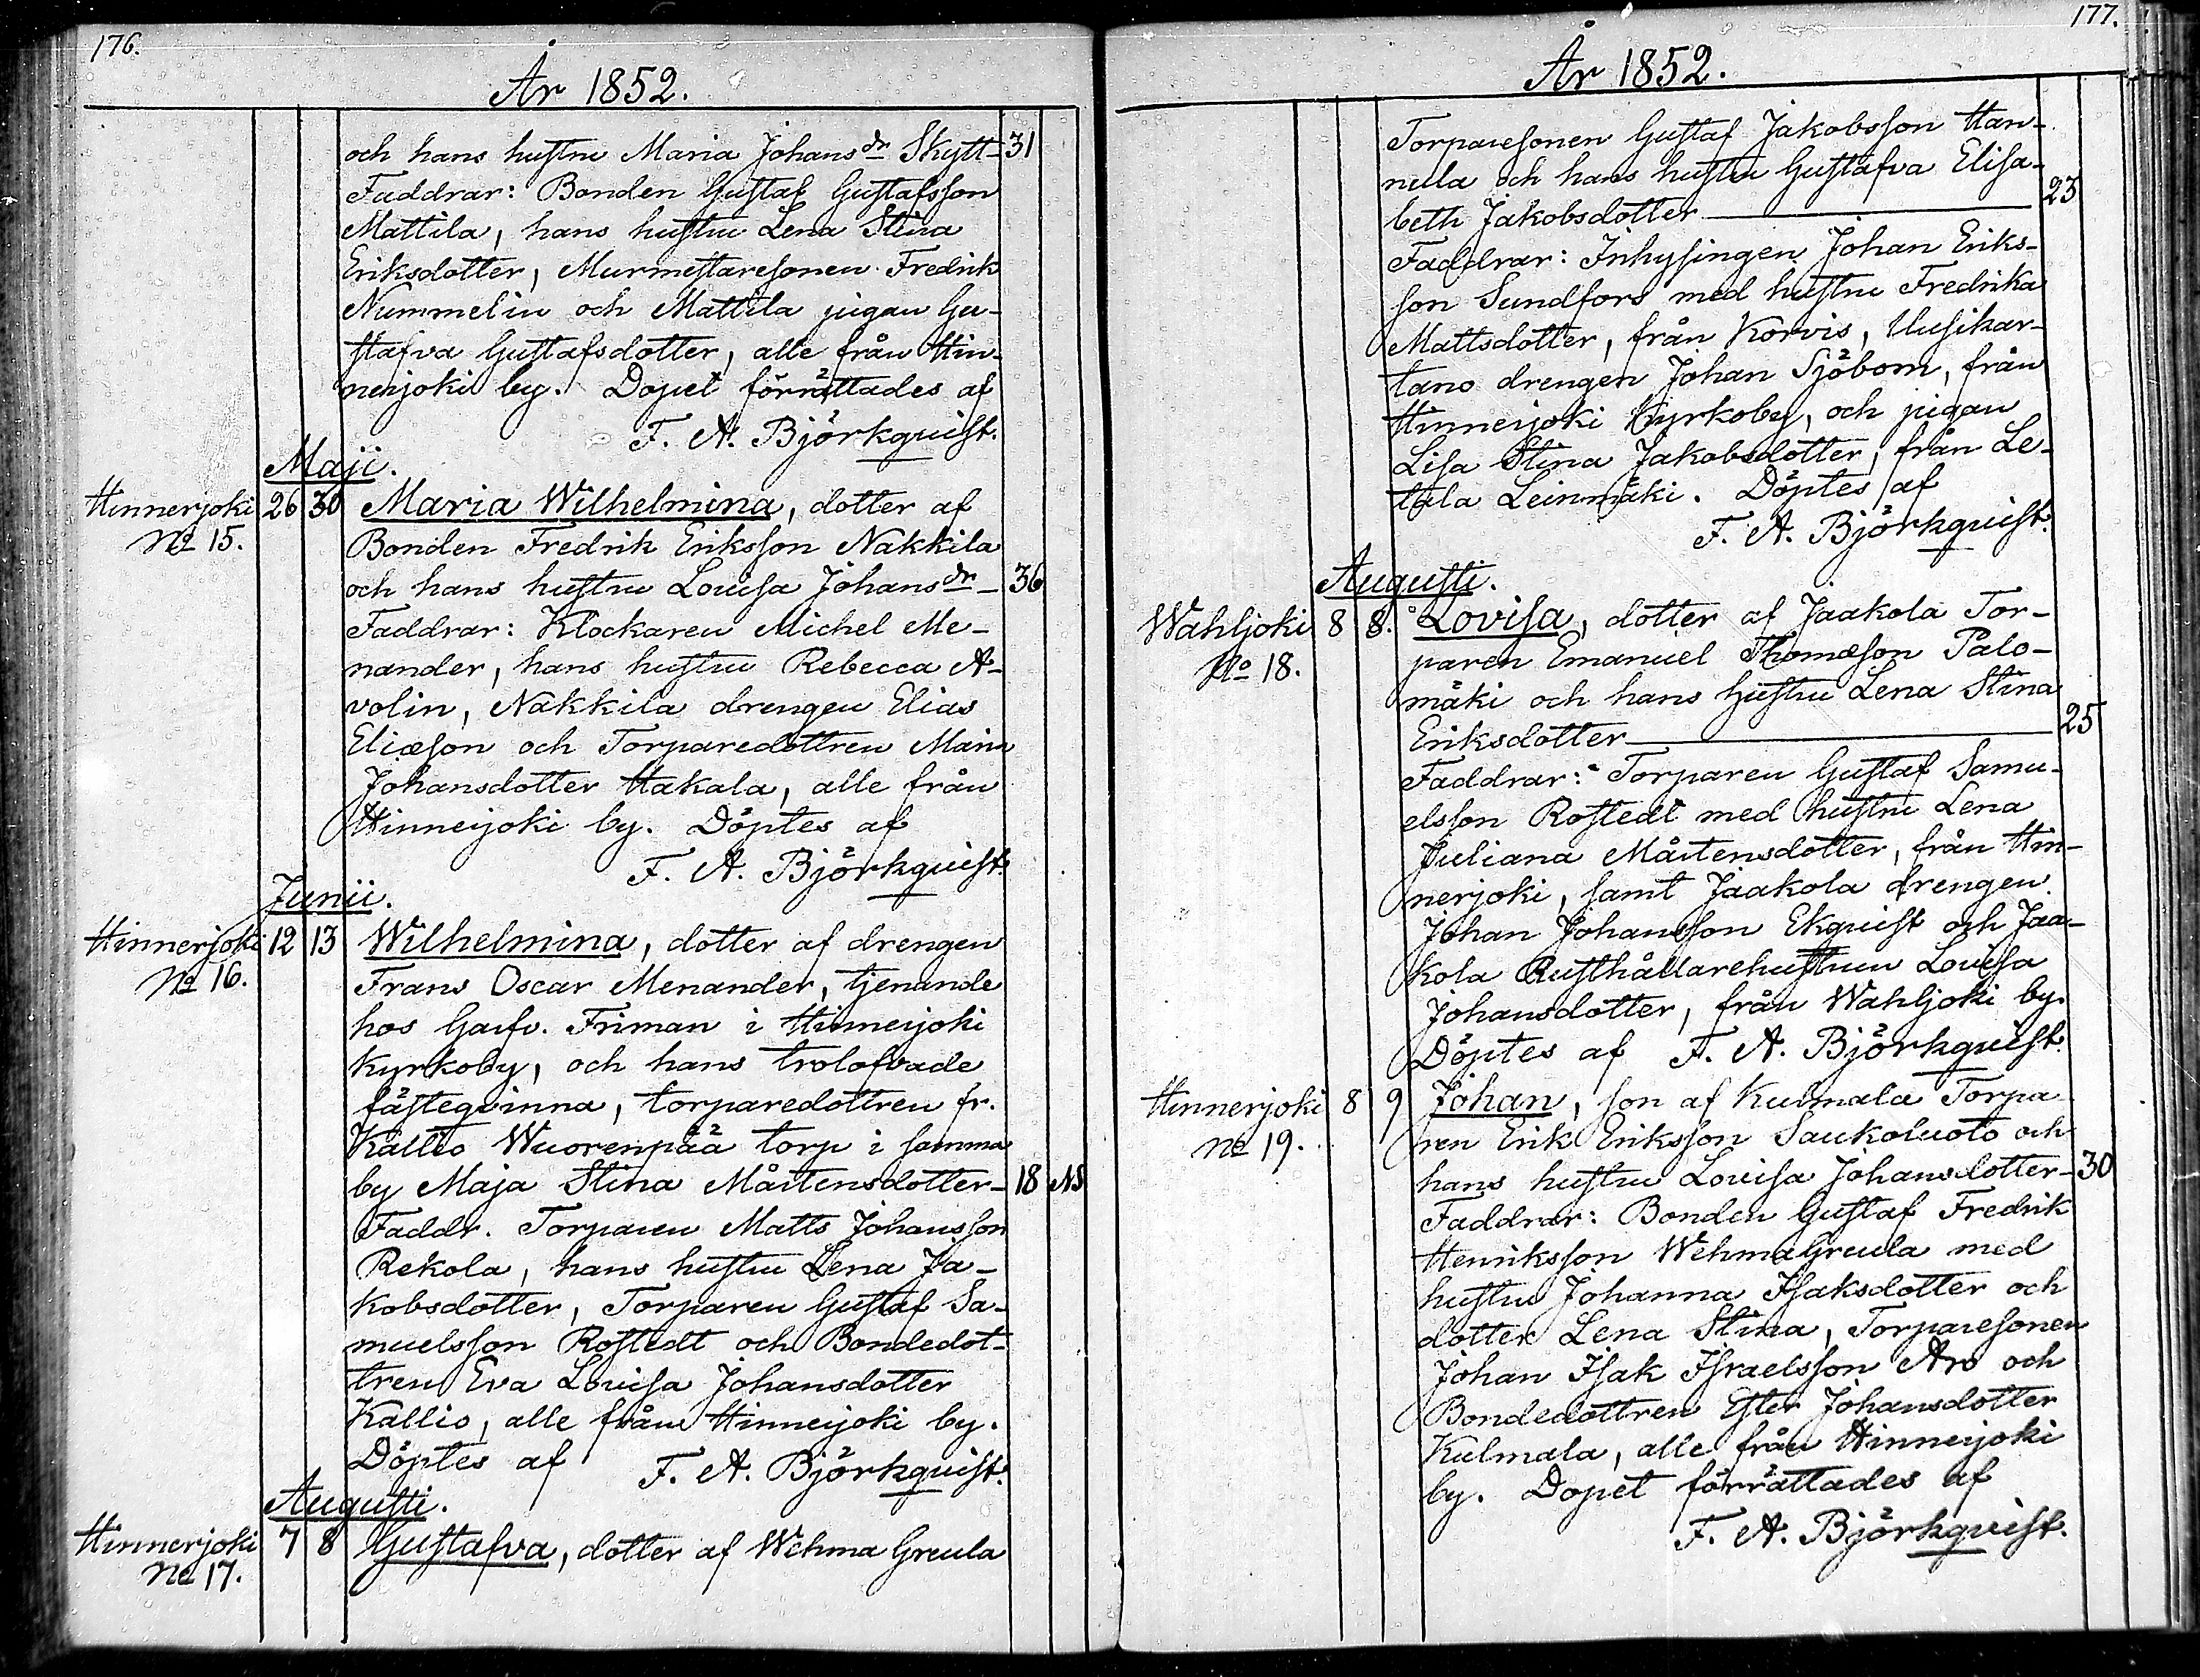 176.
År 1852.
och hans hustru Maria Johansdr Skytt – 31
Faddrar: Bonden Gustaf Gustafsson
Mattila, hans hustru Lena Stina
Eriksdotter, Murmestaresonen Fredrik
Nummelin och Mattila pigan Gu-
stafva Gustafsdotter, alle från Hin-
nerjoki by. Dopet förrättades af
F. A. Björkquist.
Maji.
Hinnerjoki 26 30 Maria Wilhelmina, dotter af
No 15. Bonden Fredrik Eriksson Nakkila
och hans hustru Lovisa Johansdr – 36
Faddrar: Klockaren Michel Me-
nander, hans hustru Rebecca A-
volin, Nakkila drengen Elias
Eliæson och Torparedottren Maria
Johansdotter Hakala, alle från
Hinnerjoki by. Döptes af
F. A. Björkquist.
Junii.
Hinnerjoki 12 13 Wilhelmina, dotter af drengen
No 16. Frans Oscar Menander, tjenande
hos Garfv. Friman i Hinnerjoki
Kyrkoby, och hans trolofvade
fästeqvinna, torparedottren fr.
Kallio Wuorenpää torp i samma
by Maja Stina Mårtensdotter – 18 NB
Faddr. Torparen Matts Johansson
Rekola, hans hustru Lena Ja-
kobsdotter, Torparen Gustaf Sa-
muelsson Rostedt och Bondedot-
tren Eva Lovisa Johansdotter
Kallio, alle från Hinnerjoki by.
Döptes af F. A. Björkquist.
Augusti.
Hinnerjoki 7 8 Gustafva, dotter af Wehma Greula
No 17.
177.
År 1852.
Torparesonen Gustaf Jakobsson Han-
nula och hans hustru Gustafva Elisa-
beth Jakobsdotter – 23
Faddrar: Inhysingen Johan Eriks-
son Sundfors med hustru Fredrika
Mattsdotter, från Korvis, Uusikar-
tano drengen Johan Sjöbom, från
Hinnerjoki Kyrkoby, och pigan
Lisa Stina Jakobsdotter, från Le-
tala Leinmäki. Döptes af
F. A. Björkquist.
Augusti.
Wahljoki 8 8. Lovisa, dotter af Jaakola Tor-
No 18. paren Emanuel Thomæson Palo-
mäki och hans hustru Lena Stina
Eriksdotter – 25
Faddrar: Torparen Gustaf Samu-
elsson Rostedt med hustru Lena
Juliana Mårtensdotter, från Hin-
nerjoki, samt Jaakola drengen
Johan Johansson Ekquist och Jaa-
kola Rusthållarehustrun Lovisa
Johansdotter, från Wahljoki by.
Döptes af F. A. Björkquist.
Hinnerjoki 8 9 Johan, son af Kulmala Torpa-
No 19. ren Erik Eriksson Saukoluoto och
hans hustru Lovisa Johansdotter – 30
Faddrar: Bonden Gustaf Fredrik
Henriksson Wehma Greula med
hustru Johanna Isaksdotter och
dotter Lena Stina, Torparesonen
Johan Isak Israelsson Aro och
Bondedottren Ester Johansdotter
Kulmala, alle från Hinnerjoki
by. Dopet förrättades af
F. A. Björkquist.